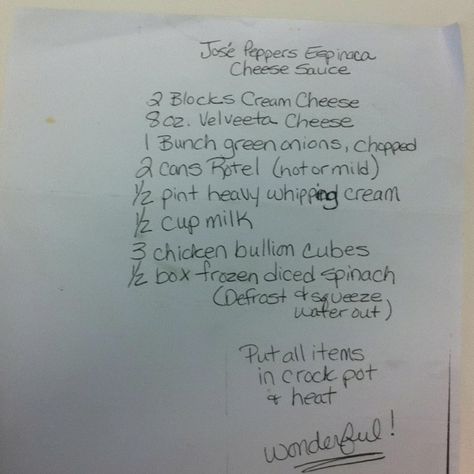 José Peppers Espinaca
Cheese Sauce
2 Blocks Cream Cheese
8 oz. Velveeta Cheese
1 Bunch green onions, chopped
2 cans Rotel (not or mild)
1/2 pint heavy whipping cream
1/2 cup milk
3 chicken bullion cubes
1/2 box frozen diced spinach
(Defrost & squeeze
water out)
Put all items
in crock pot
& heat
wonderful!